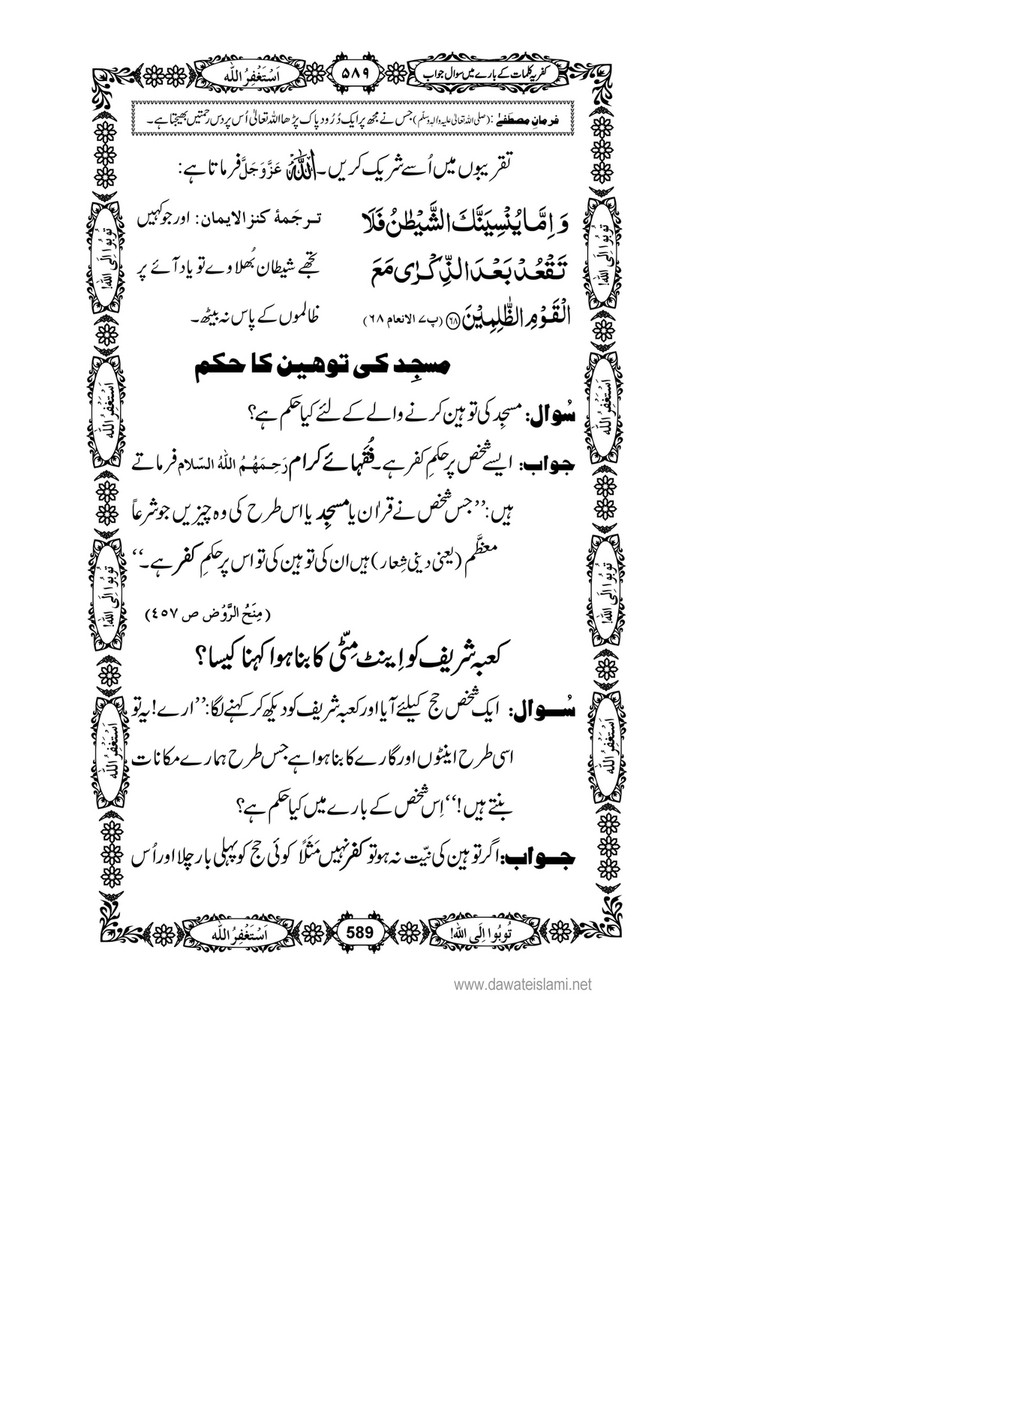 کفریہ کلمات کے بارے میں سوال جواب
۵۸۹
اَسْتَغْفِرُ اللّٰہ
فرمانِ مصطفےٰ :(صلی اللہ تعالیٰ علیہ واٰلہٖ وسلّم) جس نے مجھ پر ایک دُرُود پاک پڑھا اللہ تعالیٰ اُس پر دس رحمتیں بھیجتا ہے۔
تقریبوں میں اُسے شریک کریں۔ اللہ عَزَّوَجَلَّ فرماتا ہے:
وَ اِمَّا یُنْسِیَنَّكَ الشَّیْطٰنُ فَلَا
تَقْعُدْ بَعْدَ الذِّكْرٰى مَعَ
الْقَوْمِ الظّٰلِمِیْنَ ﴿۶۸﴾ (پ۷ الانعام ۶۸)
ترجَمۂ کنز الایمان: اور جو کہیں
تجھے شیطان بُھلاوے تو یاد آئے پر
ظالموں کے پاس نہ بیٹھ۔
مسجِد کی توھین کا حکم
سُوال: مسجِد کی توہین کرنے والے کے لئے کیا حکم ہے؟
جواب: ایسے شخص پر حکمِ کفر ہے۔ فُقَہائے کرام رَحِمَهُمُ اللهُ السّلام فرماتے
ہیں: ’’جس شخص نے قراٰن یا مسجِد یا اس طرح کی وہ چیزیں جو شرعاً
معظَّم (یعنی دینی شِعار) ہیں ان کی توہین کی تو اس پر حکمِ کفر ہے۔‘‘
(مِنَحُ الرَّوْض ص ٤٥٧)
کعبہ شریف کو اِینٹ مِٹّی کا بنا ہوا کہنا کیسا؟
سُوال: ایک شخص حج کیلئے آیا اور کعبہ شریف کو دیکھ کر کہنے لگا: ’’ارے! یہ تو
اسی طرح اینٹوں اور گارے کا بنا ہوا ہے جس طرح ہمارے مکانات
بنتے ہیں!‘‘ اِس شخص کے بارے میں کیا حکم ہے؟
جواب: اگر توہین کی نیّت نہ ہو تو کفر نہیں مَثَلًا کوئی حج کو پہلی بار چلا اور اُس
تُوبُوا اِلَی اللّٰہ!
اَسْتَغْفِرُ اللّٰہ
تُوبُوا اِلَی اللّٰہ!
اَسْتَغْفِرُ اللّٰہ
تُوبُوا اِلَی اللّٰہ!
اَسْتَغْفِرُ اللّٰہ
تُوبُوا اِلَی اللّٰہ!
اَسْتَغْفِرُ اللّٰہ
تُوبُوا اِلَی اللّٰہ!
589
اَسْتَغْفِرُ اللّٰہ
www.dawateislami.net